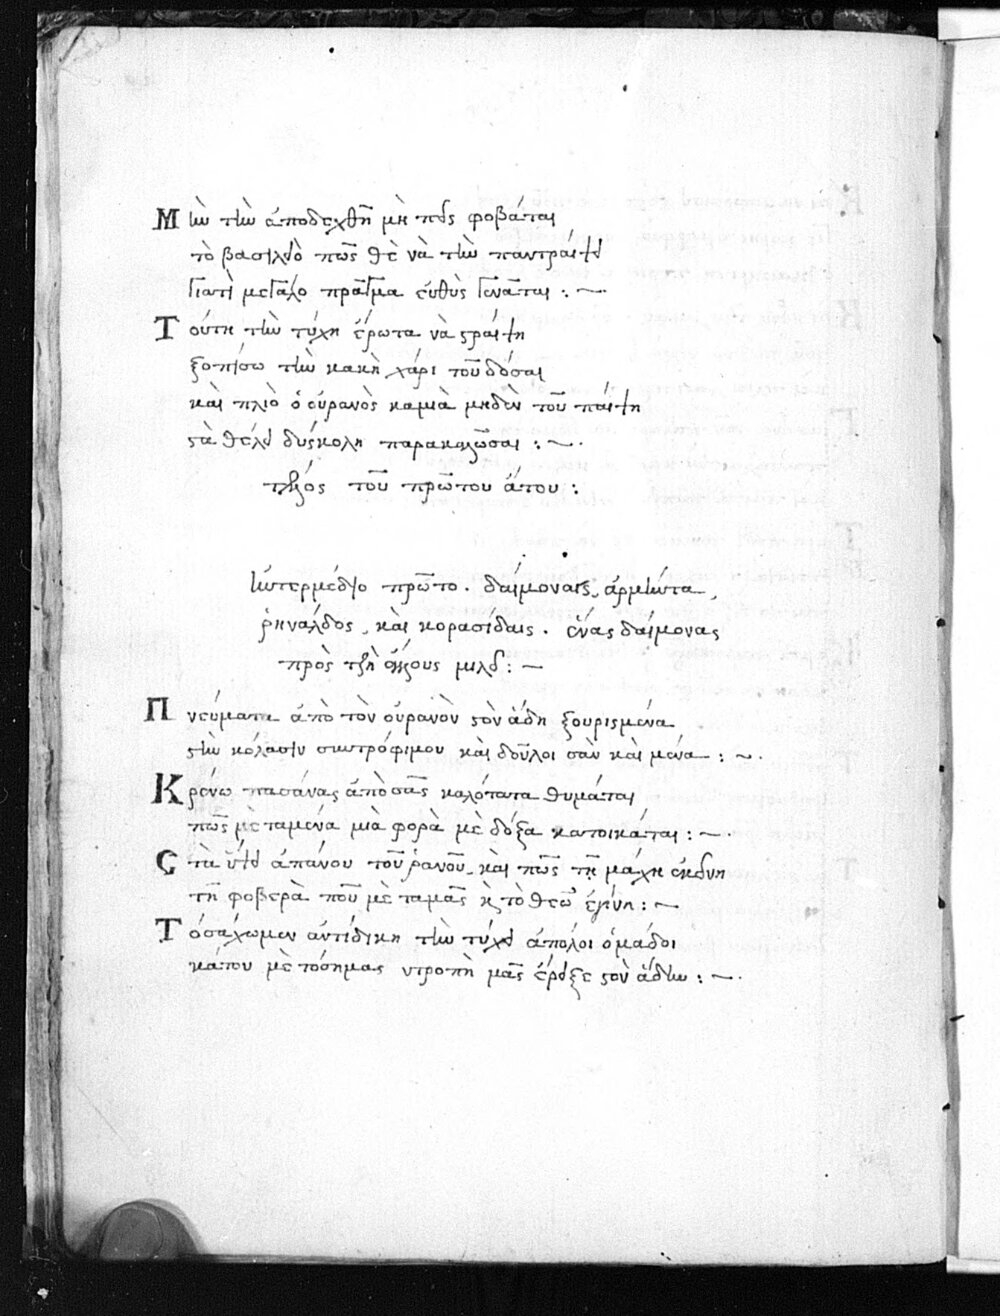 Μὴν τὴν ἀποδεχθῆ μὴ πῆς φοβᾶται
τὸ βασιλειὸ πῶς θὲ νὰ τὴν παντραίψει
γιατὶ μεγάλο πρᾶγμα εὐθὺς γενᾶται :~
Τούτη τὴν τύχη ἔρωτα νὰ στραίψη
ξοπίσω τὴν κακὴ χάρι τοῦ δόσαι
καὶ πλιὸ ὁ οὐρανὸς καμιὰ μηδὲν τοῦ παίψη
στὰ θέλει δύσκολη παρακαλῶσαι :~
τέλος τοῦ πρώτου ἄτου :
Ἰντερμέδιο πρῶτο. δαίμοναις, ἀρμίντα,
ῥηνάλδος, καὶ κορασίδαις. ἕνας δαίμονας
πρὸς τζὴ ἄλλους μιλεῖ :~
Πνεύματα ἀπὸ τὸν οὐρανὸν στὸν ἅδη ξουρισμένα
στὴν κόλασιν συντρόφιμου καὶ δοῦλοι σὰν καὶ μένα :~
Κρένω πασάνας ἀπὸ σᾶς καλότατα θυμᾶται
πῶς μὲ ταμένα μιὰ φορὰ μὲ δόξα κατοικᾶται :~
Στὰ ὕψει ἀπάνου τοῦ ρανοῦ, καὶ πῶς τῆ μάχη ἐκείνη
τῆ φοβερὰ ποῦ μὲ ταμᾶς κ τὸ θεῶ ἐγίνη :~
Τόσάχωμεν ἀντίδικη τὴν τύχει ἀπόλοι ὁμάδοι
κάπου μὲ τόσημας ντροπὴ μᾶς ἔριξε στὸν ἅδην :~